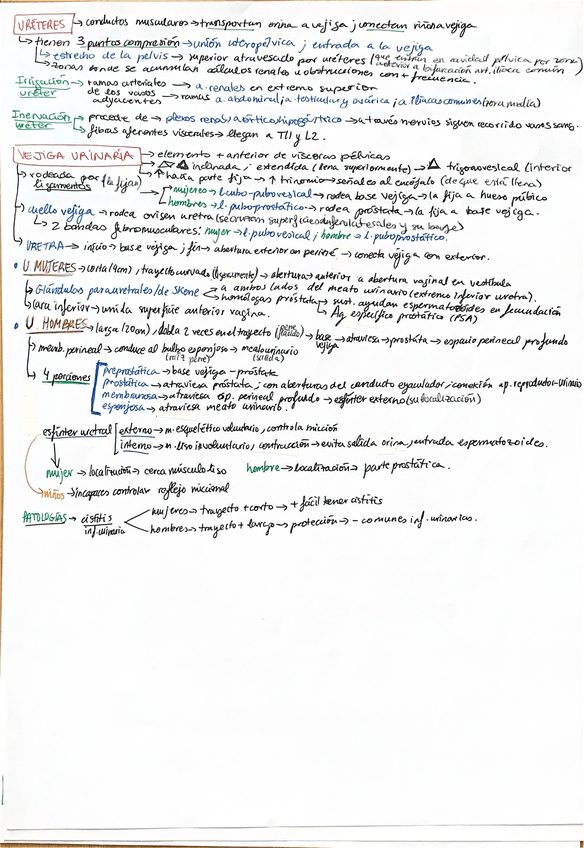 URÉTERES → conductos musculares → transportan orina a vejiga ; conectan riñón a vejiga
→ tienen 3 puntos compresión → unión uteropélvica ; entrada a la vejiga
→ estrecho de la pelvis → superior atravesado por uréteres (que entran en cavidad pélvica por zona anterior a bifurcación art. ilíaca común)
→ zonas donde se acumulan cálculos renales u obstrucciones con + frecuencia.
Irrigación uréter → ramas arteriales de los vasos adyacentes → a. renales en extremo superior
→ ramas a. abdominal ; a. testicular y ovárica ; a. ilíacas comunes (zona media)
Inervación uréter → procede de → plexos renal, aórtico, hipogástrico → a través nervios siguen recorrido vasos sang.
→ fibras aferentes viscerales → llegan a T11 y L2.
VEJIGA URINARIA → elemento + anterior de vísceras pélvicas
→ inclinada ; extendida (llena superiormente) → trigonovesical (interior
↑ hacia parte fija → ↑ trinomio → señales al encéfalo (de que está llena)
→ rodeada por ligamentos (la fijan) → mujeres → l. pubo-pubovesical → rodea base vejiga → la fija a hueso púbico
hombres → l. puboprostático → rodea próstata → la fija a base vejiga.
→ cuello vejiga → rodea orificio uretra (secruzan superficies inferolaterales y su base)
→ 2 bandas fibromusculares: mujer → l. pubovesical ; hombre → l. puboprostático.
→ URETRA → inicio → base vejiga ; fin → abertura exterior en periné → conecta vejiga con exterior.
• U. MUJERES → corta (4cm), trayecto curvado (ligeramente) → abertura anterior a abertura vaginal en vestíbulo
→ Glándulas parauretrales / de Skene → a ambos lados del meato urinario (extremo inferior uretra).
→ homólogas próstata → sust. ayudan espermatozoides en fecundación
→ Ag específico prostático (PSA)
→ cara inferior → unida superficie anterior vagina.
• U. HOMBRES → larga (20cm), dobla 2 veces en el trayecto (pene flácido) → base vejiga → atraviesa → próstata → espacio perineal profundo
→ memb. perineal → conduce al bulbo esponjoso → meato urinario (salida)
→ 4 porciones
preprostática → base vejiga - próstata
prostática → atraviesa próstata ; con aberturas del conducto eyaculador ; conexión ap. reproductor-urinario
membranosa → atraviesa esp. perineal profundo → esfínter externo (su localización)
esponjosa → atraviesa meato urinario.
esfínter uretral
externo → m. esquelético voluntario, controla micción
interno → m. liso involuntario, contracción → evita salida orina, entrada espermatozoides.
mujer → localización → cerca músculo liso hombre → localización → parte prostática.
niños → incapaces controlar reflejo miccional
PATOLOGÍAS → cistitis inf. urinaria
mujeres → trayecto + corto → + fácil tener cistitis
hombres → trayecto + largo → protección → - comunes inf. urinarias.